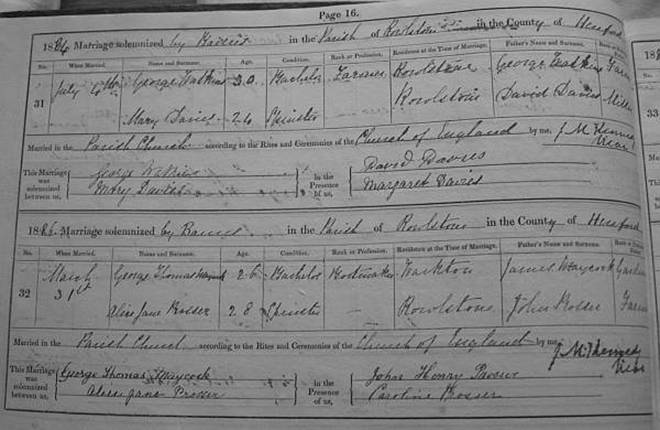 Page 16.
18 Marriage solemnized by Banns in the Parish of Rowlstone in the County of Hereford
No. When Married. Name and Surname. Age. Condition. Rank or Profession. Residence at the Time of Marriage. Father's Name and Surname. Rank
31 July George Watkins 30 Bachelor Farmer Rowlstone George Watkins
Mary Davies 24 Spinster Rowlstone David Davies Miller
Married in the Parish Church according to the Rites and Ceremonies of the Church of England by me, Vicar
This Marriage was solemnized between us, George Watkins in the Presence of us, David Davies
Mary Davies Margaret Davies
18 Marriage solemnized by Banns in the Parish of Rowlstone in the County of Hereford
No. When Married. Name and Surname. Age. Condition. Rank or Profession. Residence at the Time of Marriage. Father's Name and Surname.
32 March 31st George Thomas Maycock 26 Bachelor Bookmaker James Maycock
Alice Jane Prosser 28 Spinster — Rowlstone John Prosser
Married in the Parish Church according to the Rites and Ceremonies of the Church of England by me, Vicar
This Marriage was solemnized between us, George Thomas Maycock in the Presence of us, John Henry Prosser
Alice Jane Prosser Caroline Prosser
33